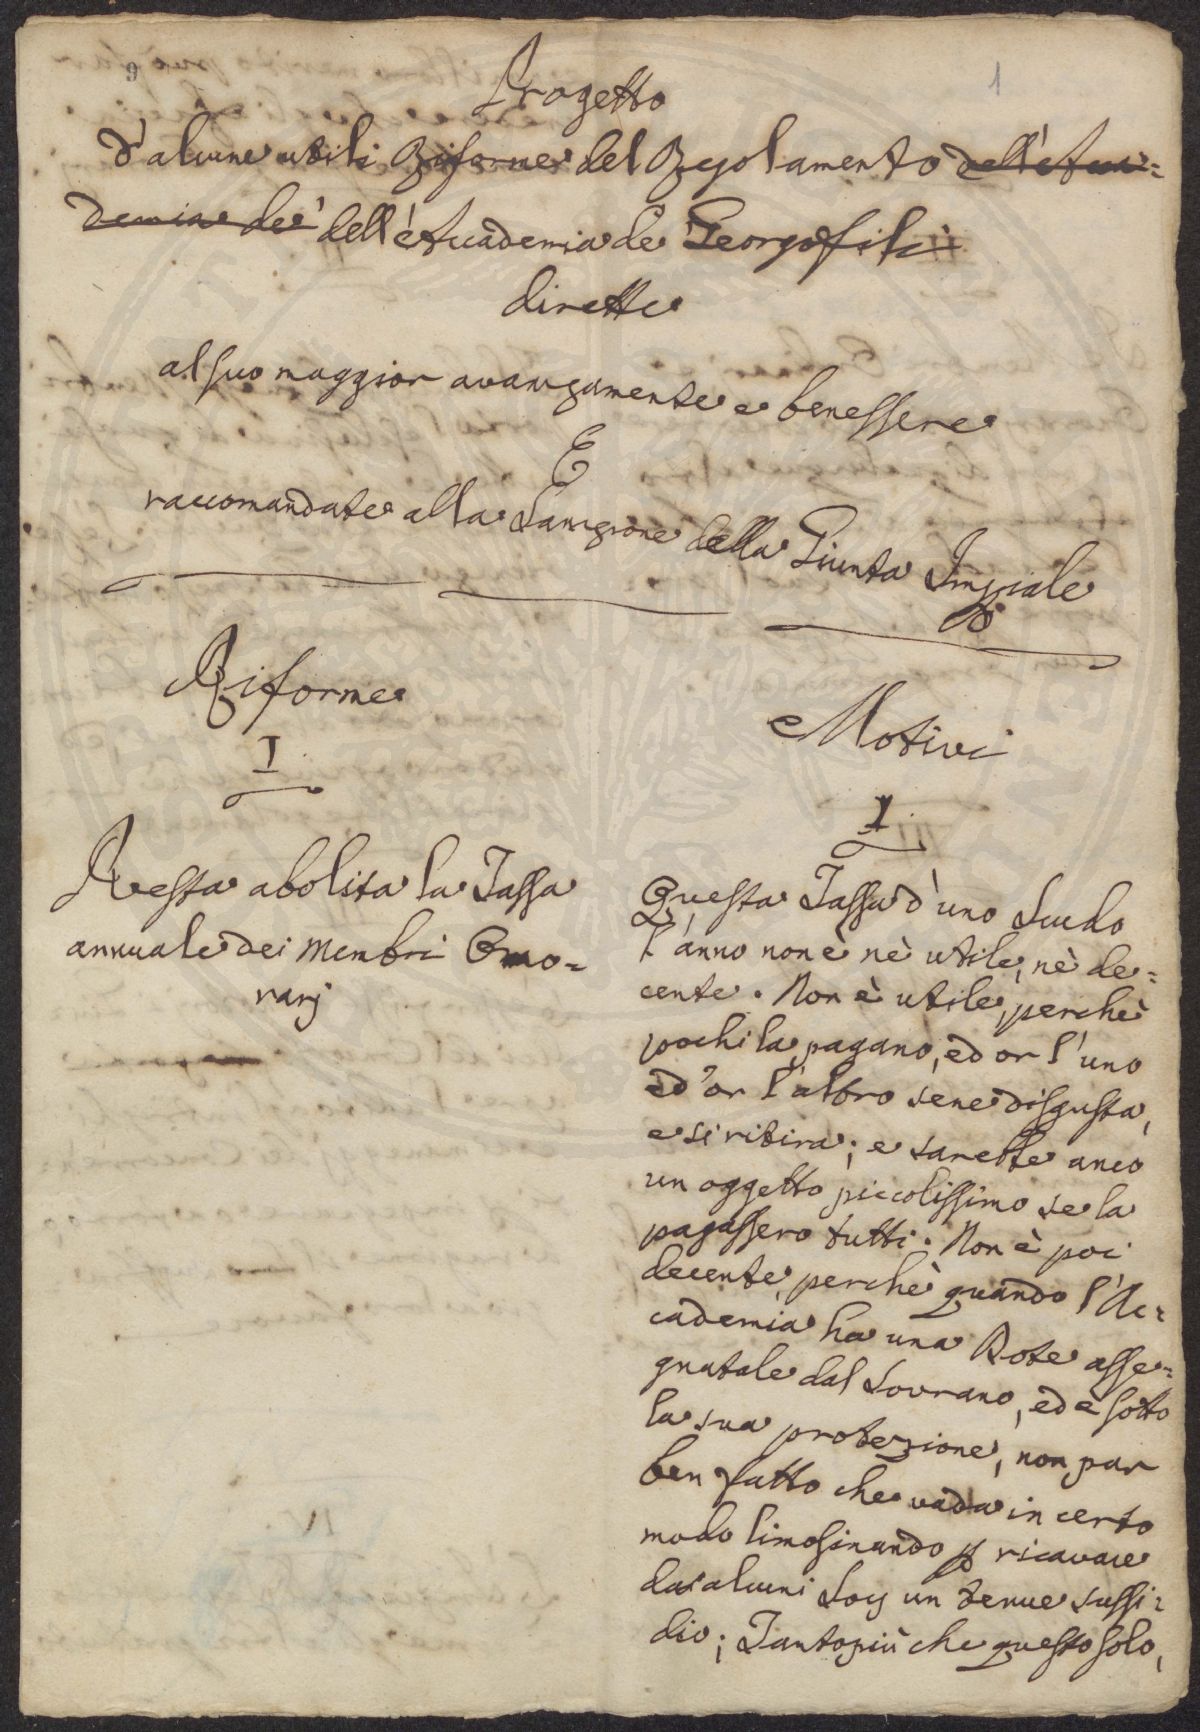 1
Progetto
d'alcune utili Riforme del Regolamento dell'Acca=
demia de' dell'Accademia de Georgofili
dirette
al suo maggior avanzamento e benessere
E
raccomandate alla Sanzione della Giunta Impiale
Riforme
I
Resta abolita la Tassa
annuale dei Membri Ono=
rarj
Motivi
I
Questa Tassa d'uno Scudo
l'anno non è nè utile, nè de=
cente. Non è utile, perchè
pochi la pagano, ed or l'uno
ed or l'altro sene disgusta,
e si ritira; e sarebbe anco
un oggetto piccolissimo se la
pagassero tutti. Non è poi
decente, perchè quando l'Ac=
cademia ha una Dote asse=
gnatale dal Sovrano, ed è sotto
la sua protezione, non par
ben fatto che vada in certo
modo limosinando p ricavare
da alcuni Socj un tenue sussi=
dio; Tantopiù che questo solo,